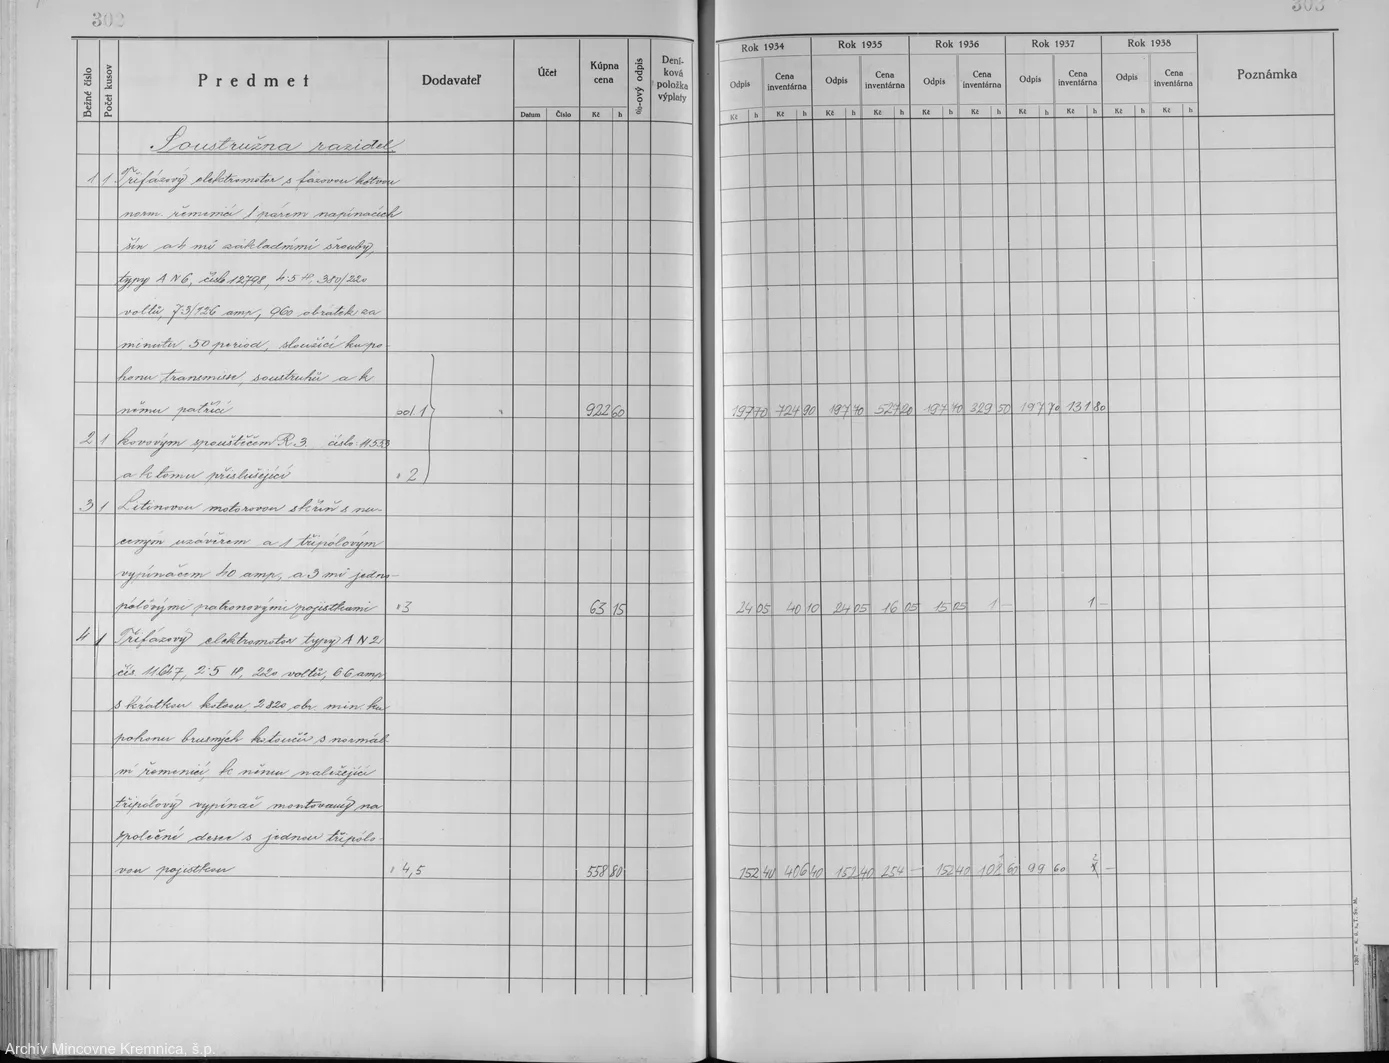 302
303
Bežné číslo
Počet kusov
Predmet
Dodavateľ
Účet
Datum Číslo
Kúpna cena
Kč h
%-ový odpis
Deníková položka výplaty
Rok 1934 Rok 1935 Rok 1936 Rok 1937 Rok 1938
Odpis Cena inventárna Odpis Cena inventárna Odpis Cena inventárna Odpis Cena inventárna Odpis Cena inventárna
Kč h Kč h Kč h Kč h Kč h Kč h Kč h Kč h Kč h Kč h
Poznámka
Soustružna razidel
1 1 Třífázový elektromotor s fázovou kotvou
norm. řemenicí 1 párem napínacích
šín a 4 mi základními šrouby,
typy AN6, číslo 12798, 4·5 HP, 380/220
voltů, 73/126 amp, 960 obrátek za
minutu 50 period, sloužící ku po-
honu transmisse, soustruhů a k
němu patřící pol. 1 " 922 60 197 70 724 90 197 70 527 20 197 70 329 50 197 70 131 80
2 1 kovovým spouštěčem R 3. číslo 11553
a k tomu příslušející " 2
3 1 Litinovou motorovou skříň s nu-
ceným uzávěrem a 1 třípólovým
vypínačem 40 amp, a 3 mi jedno-
pólovými patronovými pojistkami " 3 63 15 24 05 40 10 24 05 16 05 15 05 1 — 1 —
4 1 Třífázový elektromotor typy AN2
čís. 11647, 2·5 HP, 220 voltů, 66 amp
s krátkou kotvou, 2820 obr. min. ku
pohonu brusných kotoučů s normál-
ní řemenicí, k němu náležející
třípólový vypínač montovaný na
společní desce s jednou třípólo-
vou pojistkou " 4,5 558 80 152 40 406 40 152 40 254 — 152 40 108 60 99 60 2 —
Archív Mincovne Kremnica, š.p.